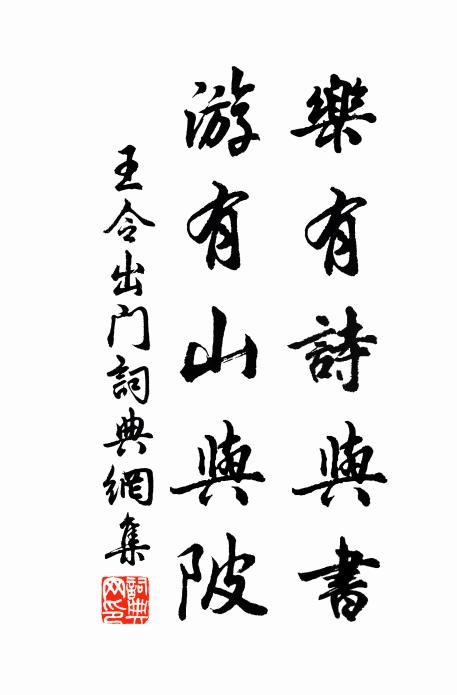 樂有詩與書
游有山與陂
王令出門詞典網集
詞典網印